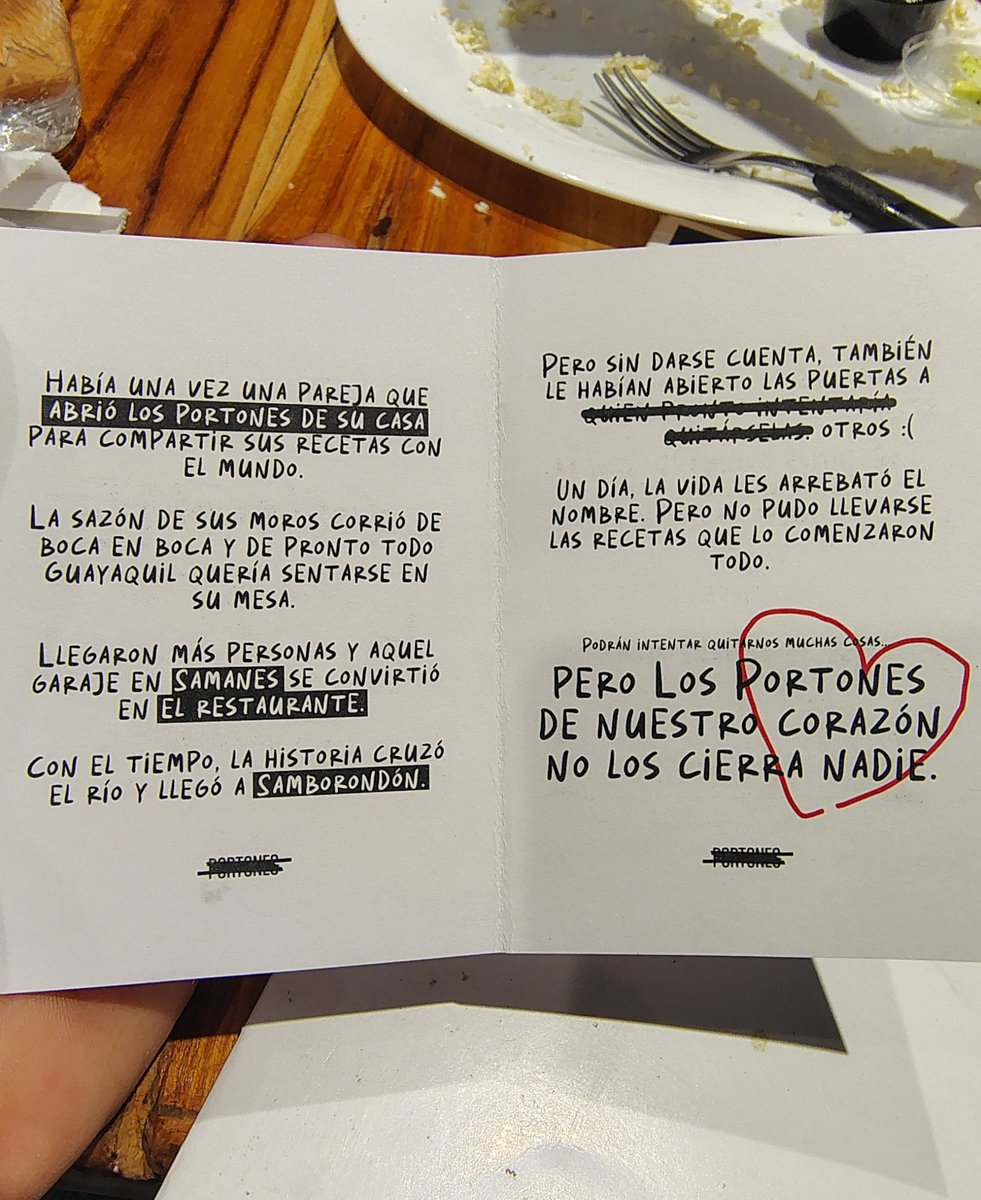 HABÍA UNA VEZ UNA PAREJA QUE
ABRIÓ LOS PORTONES DE SU CASA
PARA COMPARTIR SUS RECETAS CON
EL MUNDO.
LA SAZÓN DE SUS MOROS CORRIÓ DE
BOCA EN BOCA Y DE PRONTO TODO
GUAYAQUIL QUERÍA SENTARSE EN
SU MESA.
LLEGARON MÁS PERSONAS Y AQUEL
GARAJE EN SAMANES SE CONVIRTIÓ
EN EL RESTAURANTE.
CON EL TIEMPO, LA HISTORIA CRUZÓ
EL RÍO Y LLEGÓ A SAMBORONDÓN.
PORTONES
PERO SIN DARSE CUENTA, TAMBIÉN
LE HABÍAN ABIERTO LAS PUERTAS A
QUIEN PRONTO INTENTARÍA
QUITÁRSELAS. OTROS :(
UN DÍA, LA VIDA LES ARREBATÓ EL
NOMBRE. PERO NO PUDO LLEVARSE
LAS RECETAS QUE LO COMENZARON
TODO.
PODRÁN INTENTAR QUITARNOS MUCHAS COSAS...
PERO LOS PORTONES
DE NUESTRO CORAZÓN
NO LOS CIERRA NADIE.
PORTONES